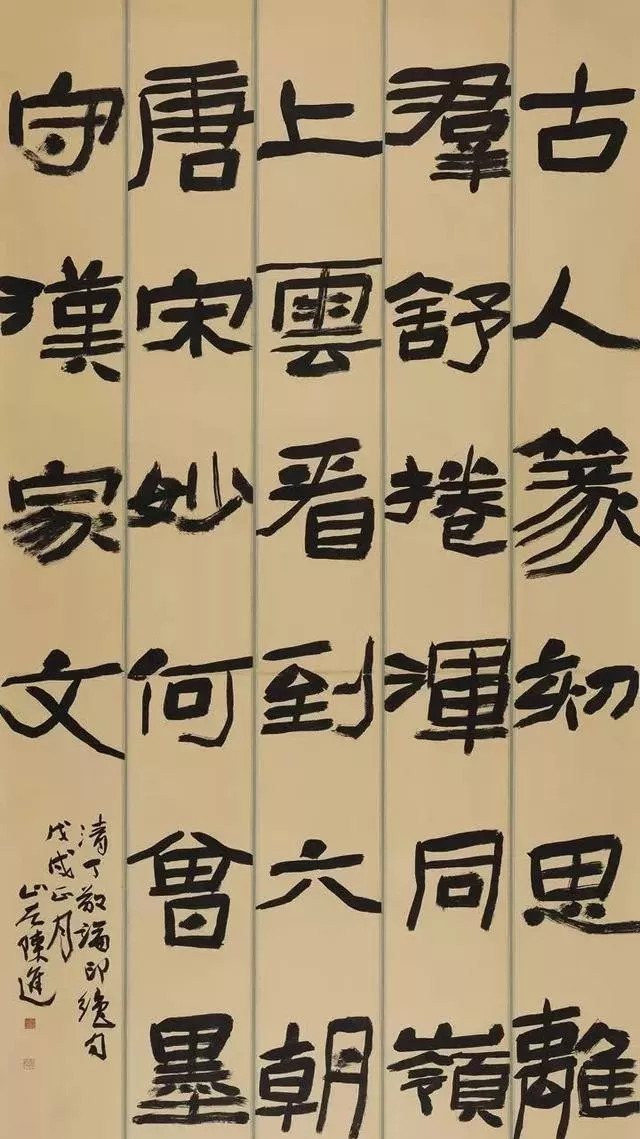 古人篆刻思離
羣舒捲渾同嶺
上雲看到六朝
唐宋妙何曾墨
守漢家文
清丁敬論印绝句
戊戌正月
山石陳進